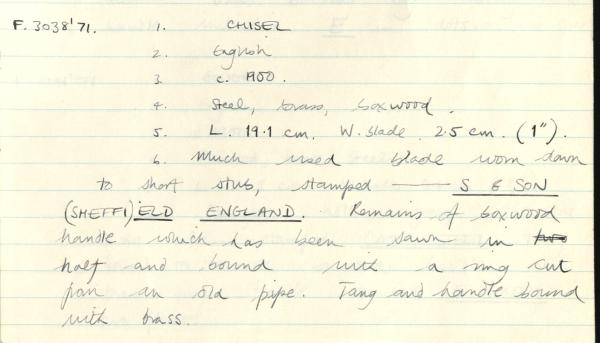 F. 3038'71. 1. CHISEL
2. English
3. c. 1900.
4. Steel, brass, boxwood.
5. L. 19.1 cm. W. blade 2.5 cm. (1").
6. Much used blade worn down
to short stub, stamped —— S & SON
(SHEFFI)ELD ENGLAND. Remains of boxwood
handle which has been sawn in two
half and bound with a ring cut
from an old pipe. Tang and handle bound
with brass.